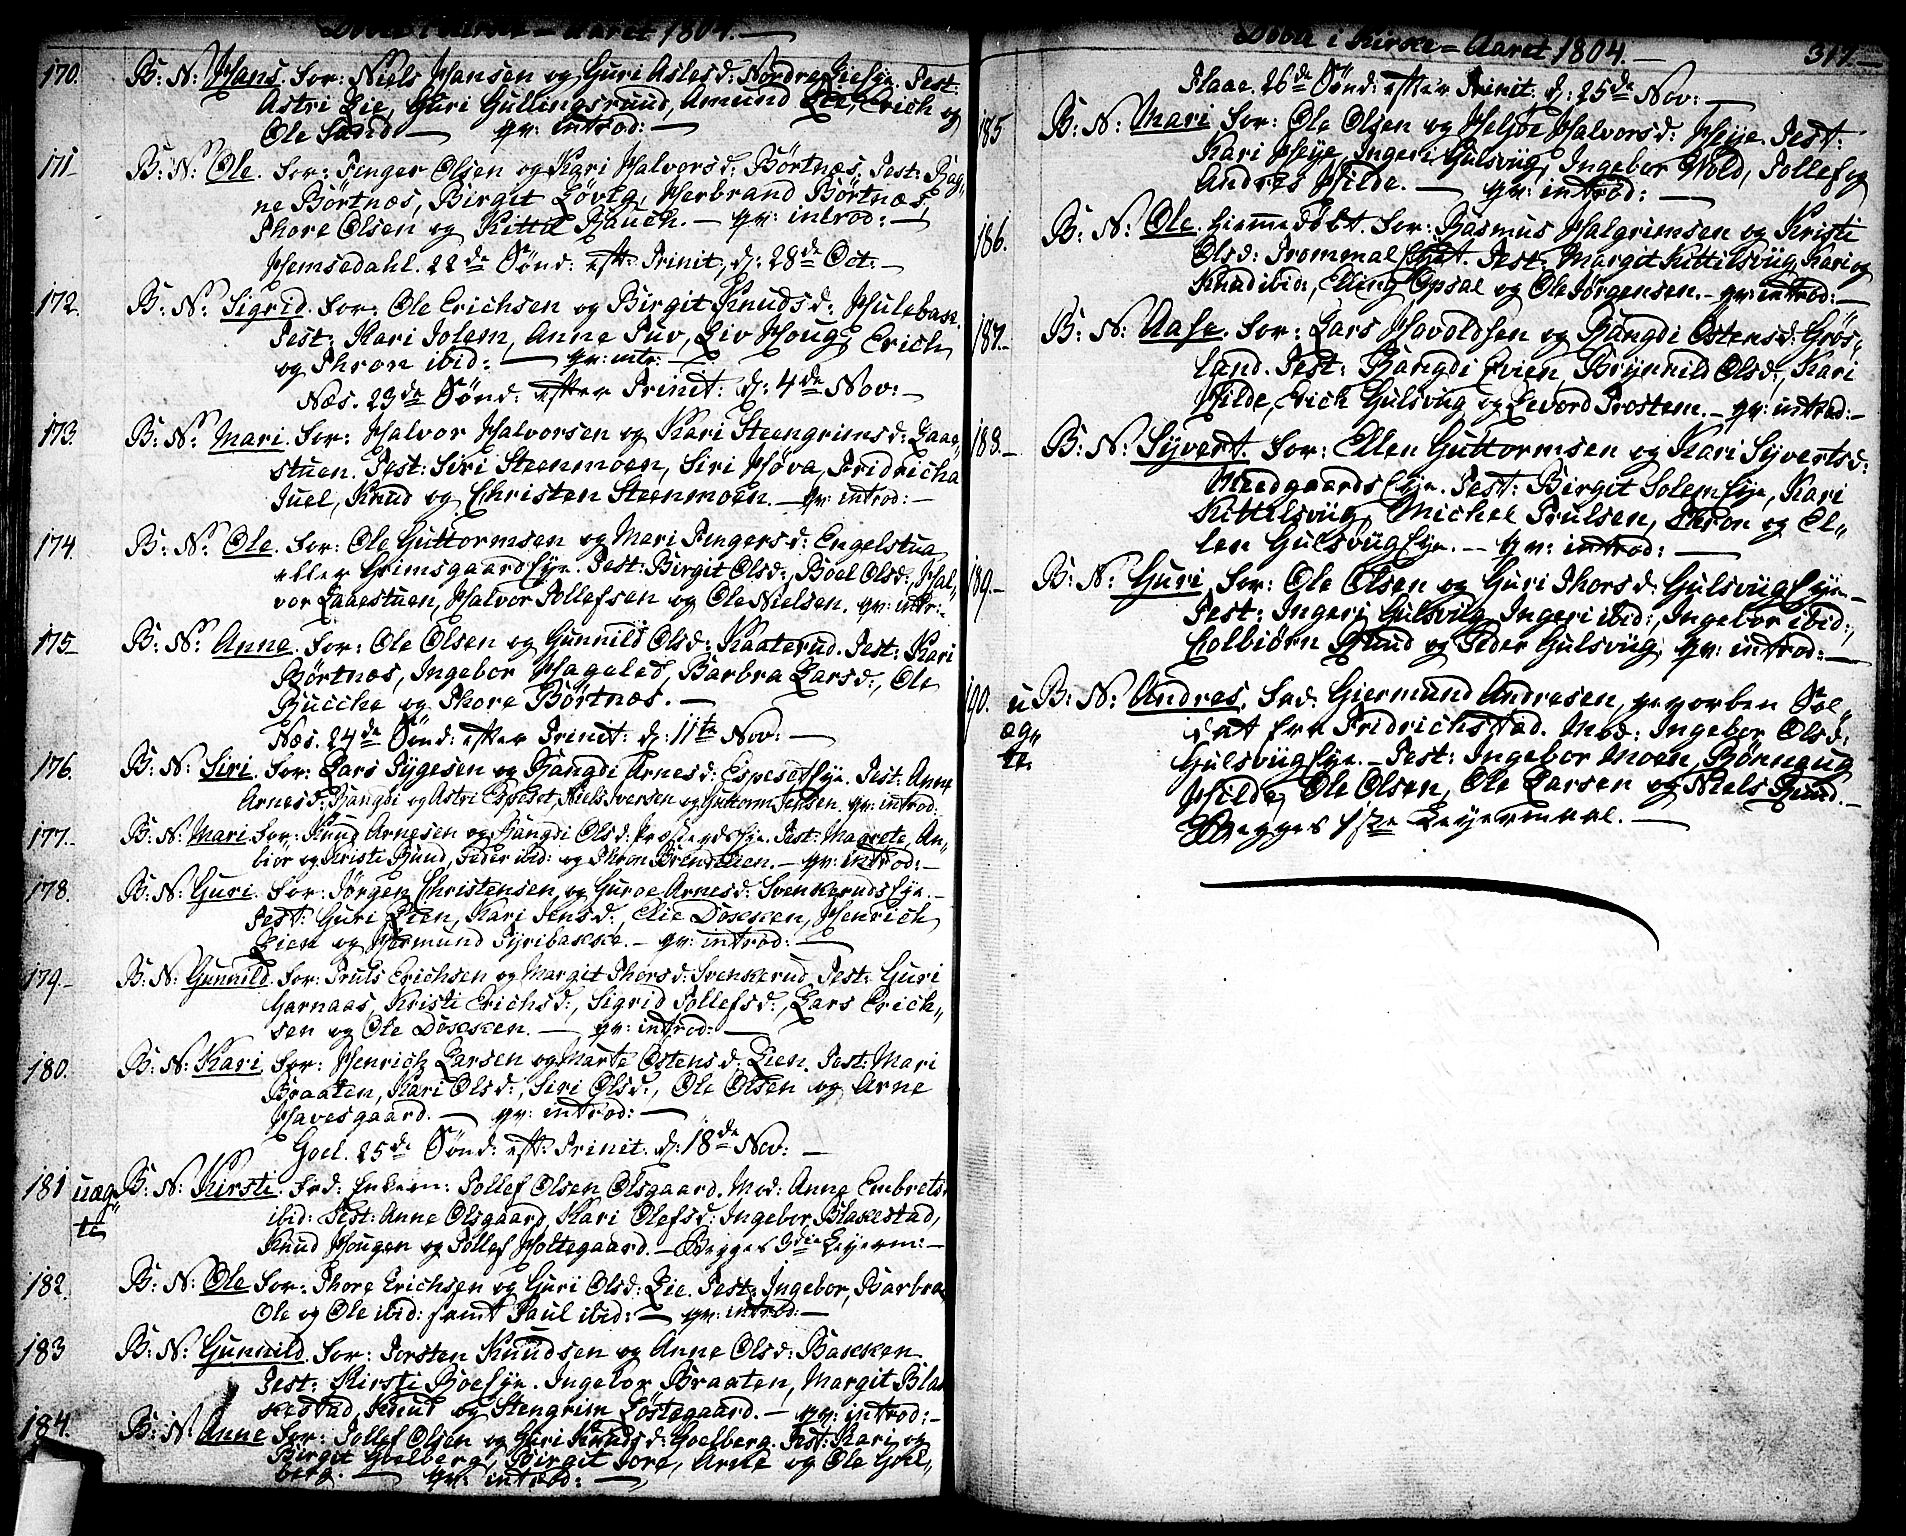 Döbte i Kirke - Aaret 1804. -
170. B: N: Hans. For: Niels Hansen og Guri Aslesd: Nordre Lie Eye. Test:
Astri Lie, Guri Gullingsruud, Amund Lie, Erich og
Ole - qv: introd: -
171 B: N: Ole. For: Finger Olsen og Kari Halvorsd: Börtnæs, Test: Rag„
ne Börtnæs, Birgit Lövig, Herbrand Börtnæs
Thore Olsen og Kittil Rauch. - qv: introd: -
Hemsedahl. 22de Sönd: eft: Trinit: d: 28de Oct: -
172. B: N: Sigrid. For: Ole Erichsen og Birgit Knudsd: Hulebak.
Test: Kari Solem, Anne Tuv, Liv Houg, Erich
og Thron ibid: - qv: intr: -
Næs. 23de Sönd: efter Trinit: d: 4de Nov: -
173. B: N: Mari. For: Halvor Halvorsen og Kari Steengrimsd: Laae„
stuen. Test: Siri Steenmoen, Siri Höva, Fridricha
Juel, Knud og Christen Steenmoen. - qv: introd: -
174 B: N: Ole. For: Ole Guttormsen og Mari Fingersd: Engelstua
eller Grimsgaard Eye. Test: Birgit Olsd:, Böel Olsd:, Hal„
vor Laaestuen, Halvor Tollefsen og Ole Nielsen. qv: intr: -
175 B: N: Anne. For: Ole Olsen og Gunnild Olsd: Kaaterud. Test: Kari
Börtnæs, Ingebor Hageled, Barbra Larsd:, Ole
Bucche og Thore Börtnæs. -
Næs. 24de Sönd: efter Trinit: d: 11te Nov: -
176. B: N: Siri. For: Lars Sygesen og Rangdi Arnesd: Espeset Eye. Test: Anne
Arnesd: Rangdi og Astri Espeset, Niels Iversen og Guttorm Jensen. qv: introd:
177. B: N: Mari. For: Knud Arnesen og Rangdi Olsd: Eye. Test: Magrete, An„
bior og Kristi Rund, Peder ibid: og Thron Brendelien. - qv: introd: -
178. B: N: Guri. For: Jörgen Christensen og Guroe Arnesd: Svenkerud Eye. -
Test: Guri Lien, Kari Jensd:, Elie Dokken, Henrich
Lien og Hermund Tyribakke. - qv: introd: -
179. B: N: Gunnild. For: Truls Erichsen og Margit Thorsd: Svenkerud. Test: Guri
Garnaas, Kristi Erichsd:, Sigrid Tollefsd:, Lars Erich„
sen og Ole Dokken. - qv: introd: -
180. B: N: Kari. For: Henrich Larsen og Marte Östensd: Lien. Test: Mari
Braaten, Kari Olsd:, Siri Olsd:, Ole Olsen og Arne
Havesgaard. - qv: introd: -
Goel. 25de Sönd: eft: Trinit: d: 18de Nov: -
181 uæg„te B: N: Kirsti. Fad: Enkem: Tollef Olsen Olsgaard. Mod: Anne Embretsd
ibid: Test: Anne Olsgaard, Kari Olefsd: Ingebor Blakestad,
Knud Hougen og Tollef Holtegaard. - Begges 3die Leyerm: -
182. B: N: Ole. For: Thore Erichsen og Guri Olsd: Lie. Test: Ingebor, Barbra,
Ole og Ole ibid: samt Paul ibid: - qv: introd: -
183 B: N: Gunnild. For: Torsten Knudsen og Anne Olsd: Bakken.
Test: Kirsti Röe Eye. Ingebor Braaten, Margit Bla„
kestad, Knud og Stengrim Löstegaard. - qv: introd: -
184. B: N: Anne. For: Tollef Olsen og Guri Knudsd: Goelberg. Test: Kari og
Birgit Goelberg, Birgit Tore, Arne og Ole Goel„
berg. - qv: introd: -
Döbte i Kirke - Aaret 1804. - 317. -
Flaae. 26de Sönd: efter Trinit: d: 25de Nov: -
185 B: N: Mari For: Ole Olsen og Heljöe Halvorsd: Höye. Test:
Kari Höye, Ingeri Gulsviig, Ingebor Wold, Tollef og
Andres Hilde. - qv: introd: -
186. B: N: Ole. hiemmedöbt. For: Rasmus Halgrimsen og Kristi
Olsd: Trommal Eyet. Test: Margit Kittilsviig, Kari og
Knud ibid:, Elling Opsal og Ole Jörgensen. - qv: introd: -
187. B: N: Aase. For: Lars Havoldsen og Rangdi Östensd: Grös„
land. Test: Rangdi Evien, Brynnild Olsd:, Kari
Hilde, Erich Gulsviig og Levord Trostem. - qv: introd: -
188. B: N: Syvert. For: Ellen Guttormsen og Kari Syvertsd:
Medgaards Eye. Test: Birgit Solem Eye, Kari
Kittilsviig, Michel Trulsen, Thron og El„
len Gulsviig Eye. - qv: introd: -
189. B: N: Guri. For: Ole Olsen og Guri Thorsd: Gulsviig Eye -
Test: Ingeri Gulsviig, Ingeri ibid:, Ingebor ibid:,
Colbiörn Rund og Peder Gulsviig. qv: introd: -
190. uæg„te B: N: Andres. Fad: Giermund Andresen, geworben Sol„
dat fra Fridrichstad. Mod: Ingebor Olsd:
Gulsviig Eye. - Test: Ingebor Moen, Rönnoug
Hilde, Ole Olsen, Ole Larsen og Niels Rund. -
Begges 1ste Leyermaal. -